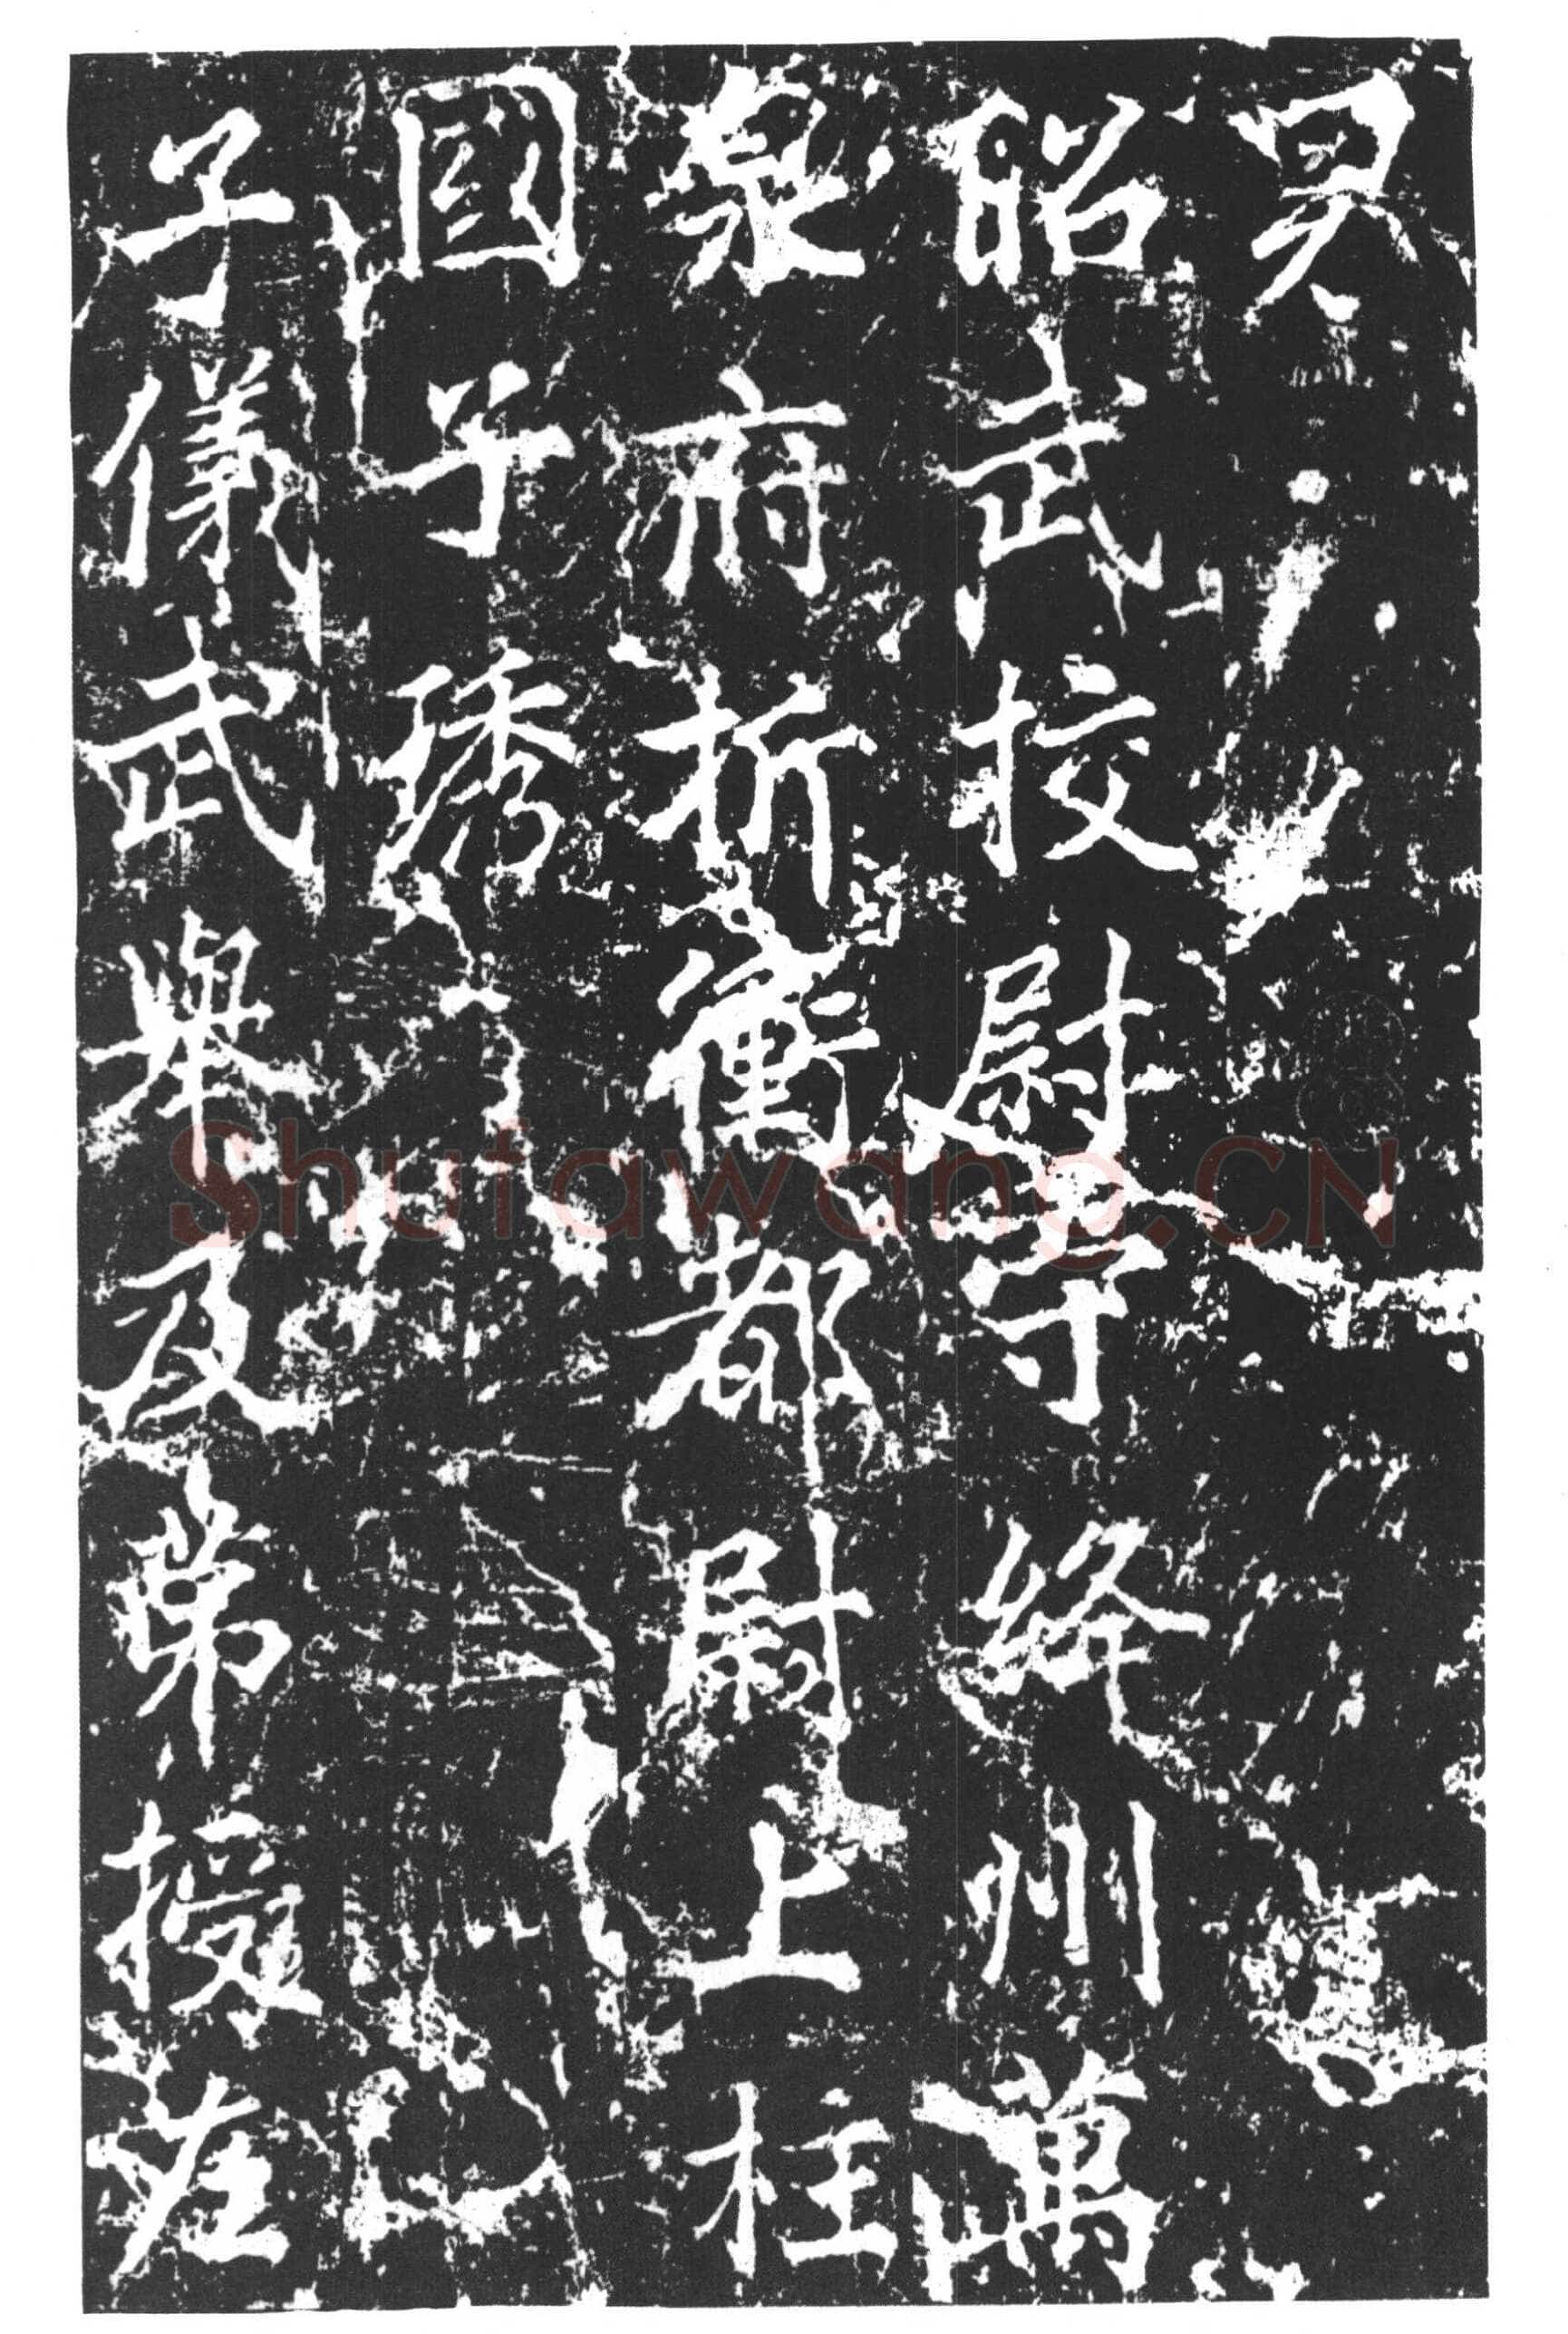 昭武挍尉守絳州萬
泉府折衝都尉上柱
國子琇
子儀武舉及苐授左
Shufawang.CN